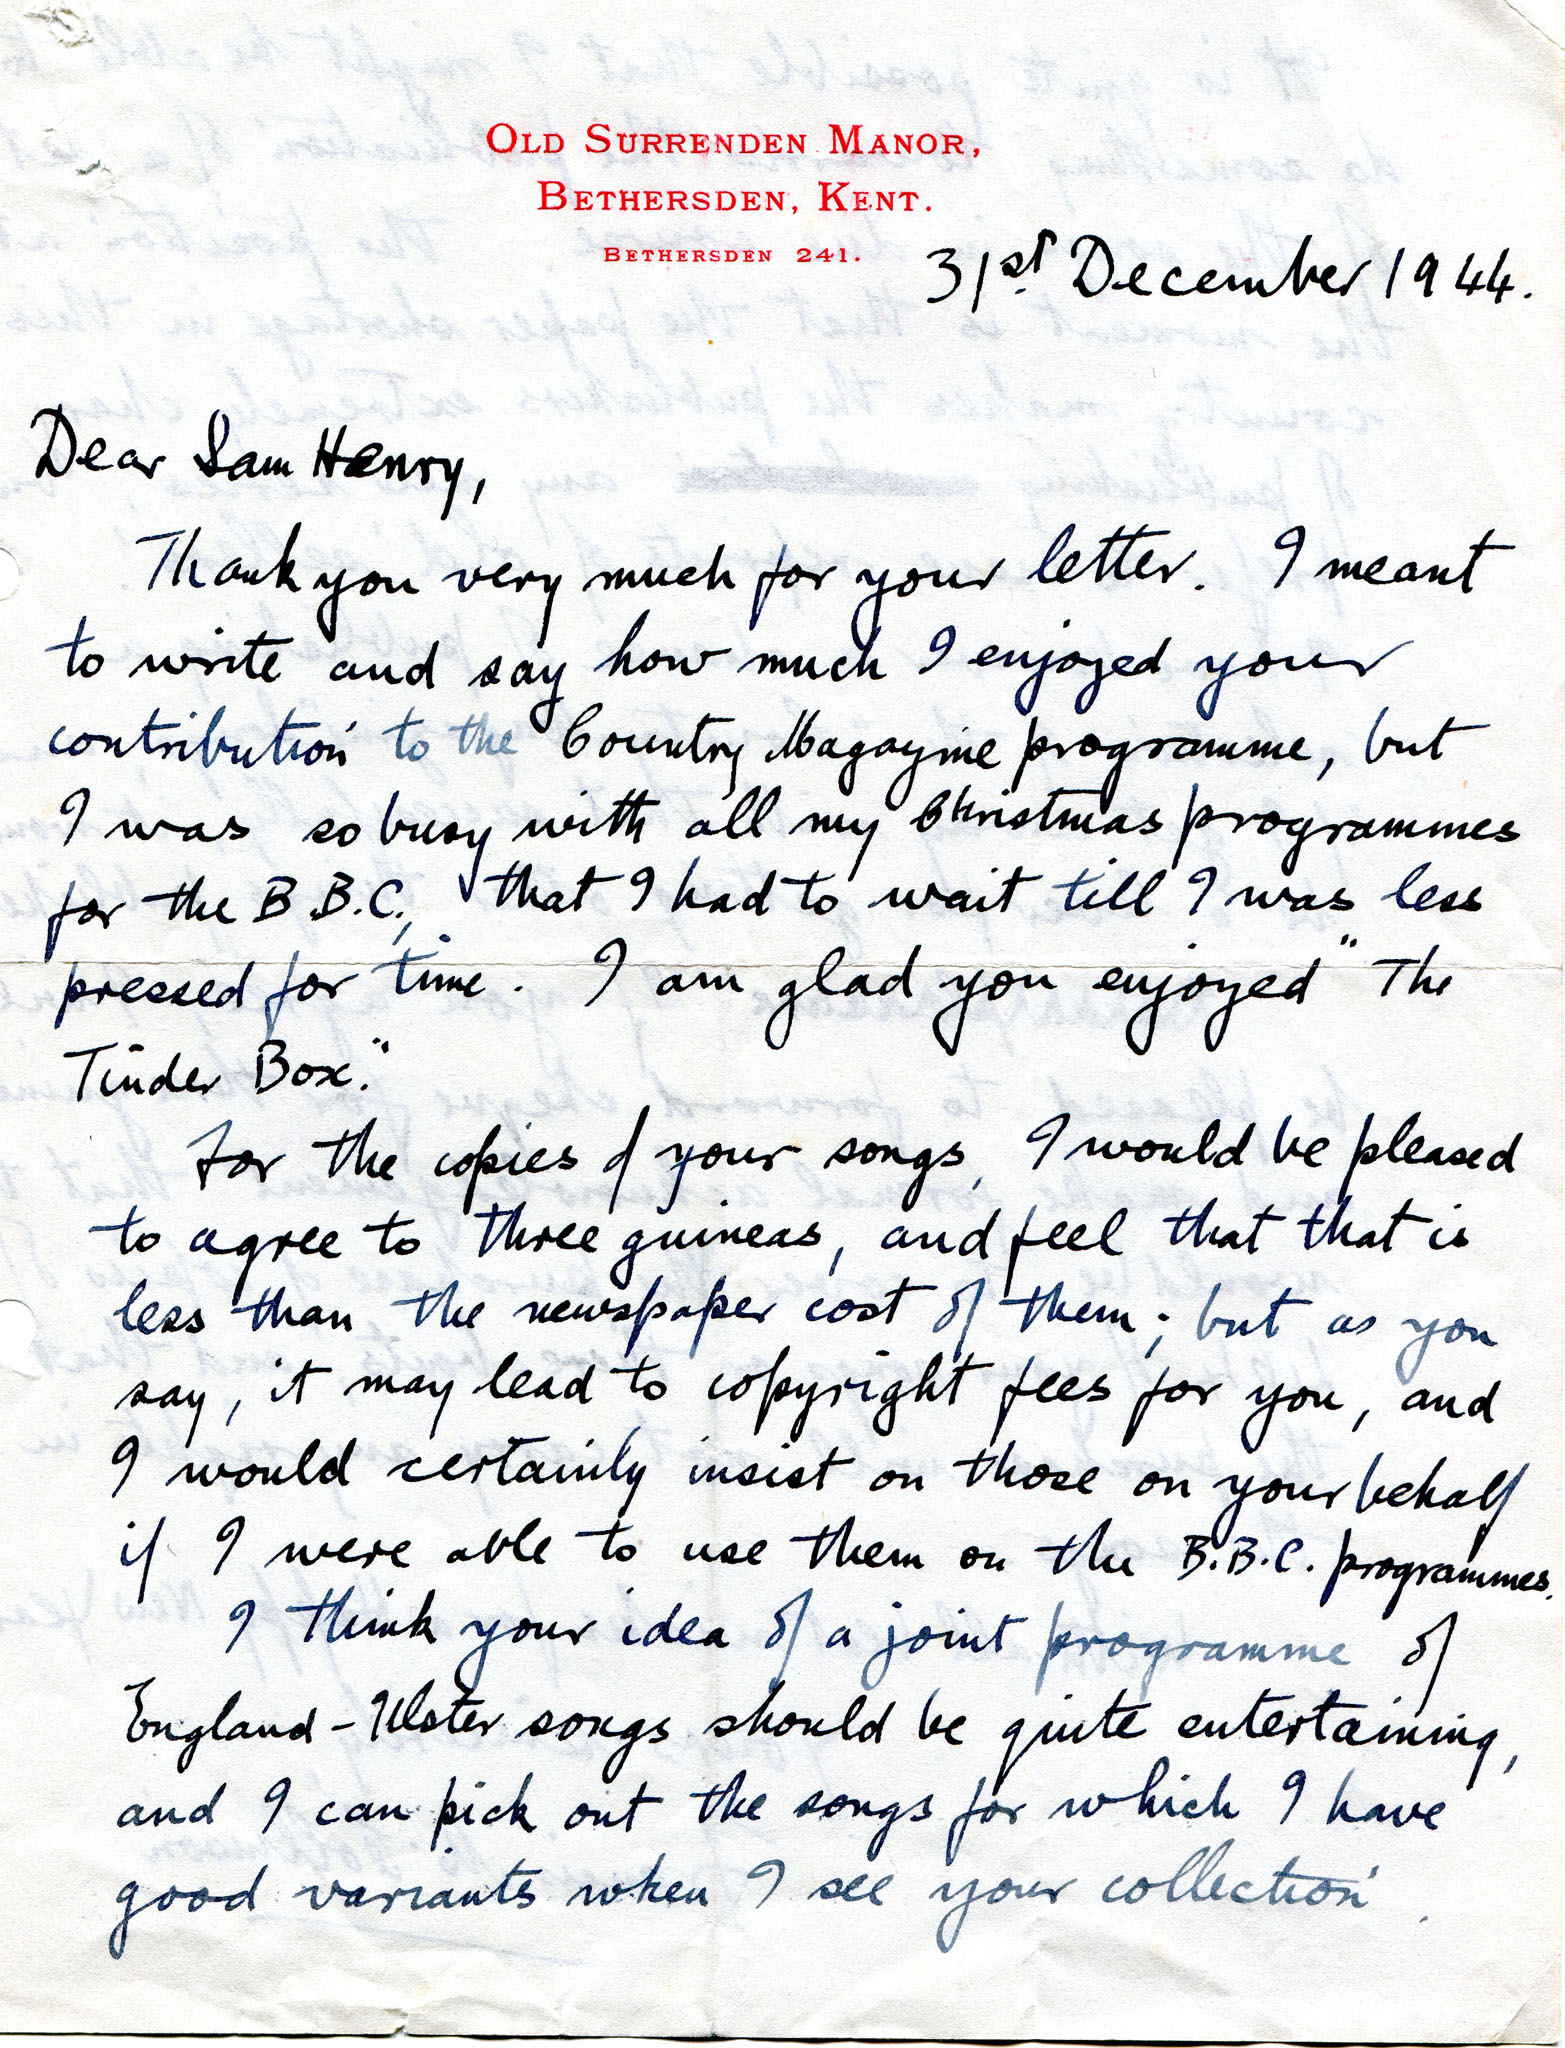 OLD SURRENDEN MANOR,
BETHERSDEN, KENT.
BETHERSDEN 241.
31st. December 1944.
Dear Sam Henry,
Thank you very much for your letter. I meant
to write and say how much I enjoyed your
contribution to the Country Magazine programme, but
I was so busy with all my Christmas programmes
for the B.B.C., that I had to wait till I was less
pressed for time. I am glad you enjoyed "The
Tinder Box."
For the copies of your songs, I would be pleased
to agree to three guineas, and feel that that is
less than the newspaper cost of them; but as you
say, it may lead to copyright fees for you, and
I would certainly insist on those on your behalf
if I were able to use them on the B.B.C. programmes.
I think your idea of a joint programme of
England-Ulster songs should be quite entertaining,
and I can pick out the songs for which I have
good variants when I see your collection.